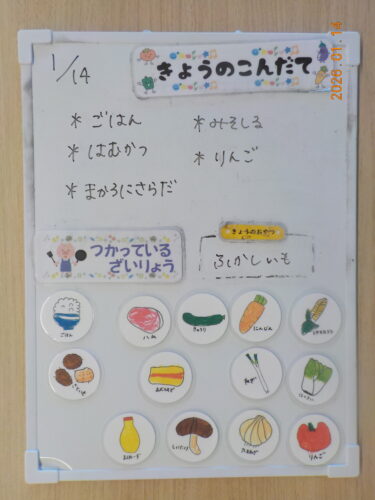 2026.01.14
1/14
きょうのこんだて
* ごはん
* みそしる
* はむかつ
* りんご
* まかろにさらだ
つかっている
ざいりょう
きょうのおやつ
ふかしいも
ごはん
ハム
きゅうり
にんじん
ねぎ
しいたけ
りんご